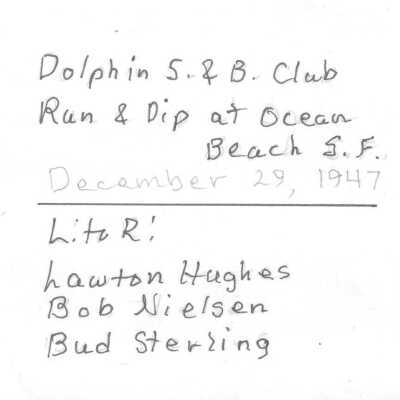 Dolphin S. & B. Club
Run & Dip at Ocean
Beach S.F.
December 29, 1947
L. to R:
Lawton Hughes
Bob Nielsen
Bud Sterling